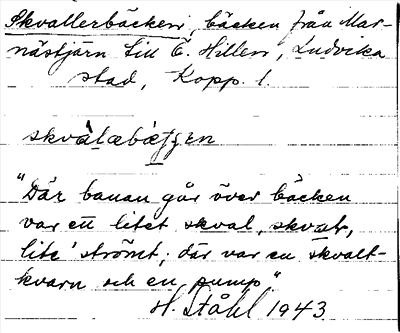 Skvallerbäcken, bäcken från Mar-
nästjärn till Ö. Hillen, Ludvika
stad, Kopp. l.
skvàlæbætjen
"Där banan går över bäcken
var ett litet skval, skvalr,
lite' strömt; där var en skvalt-
kvarn och en pump"
H. Ståhl 1943